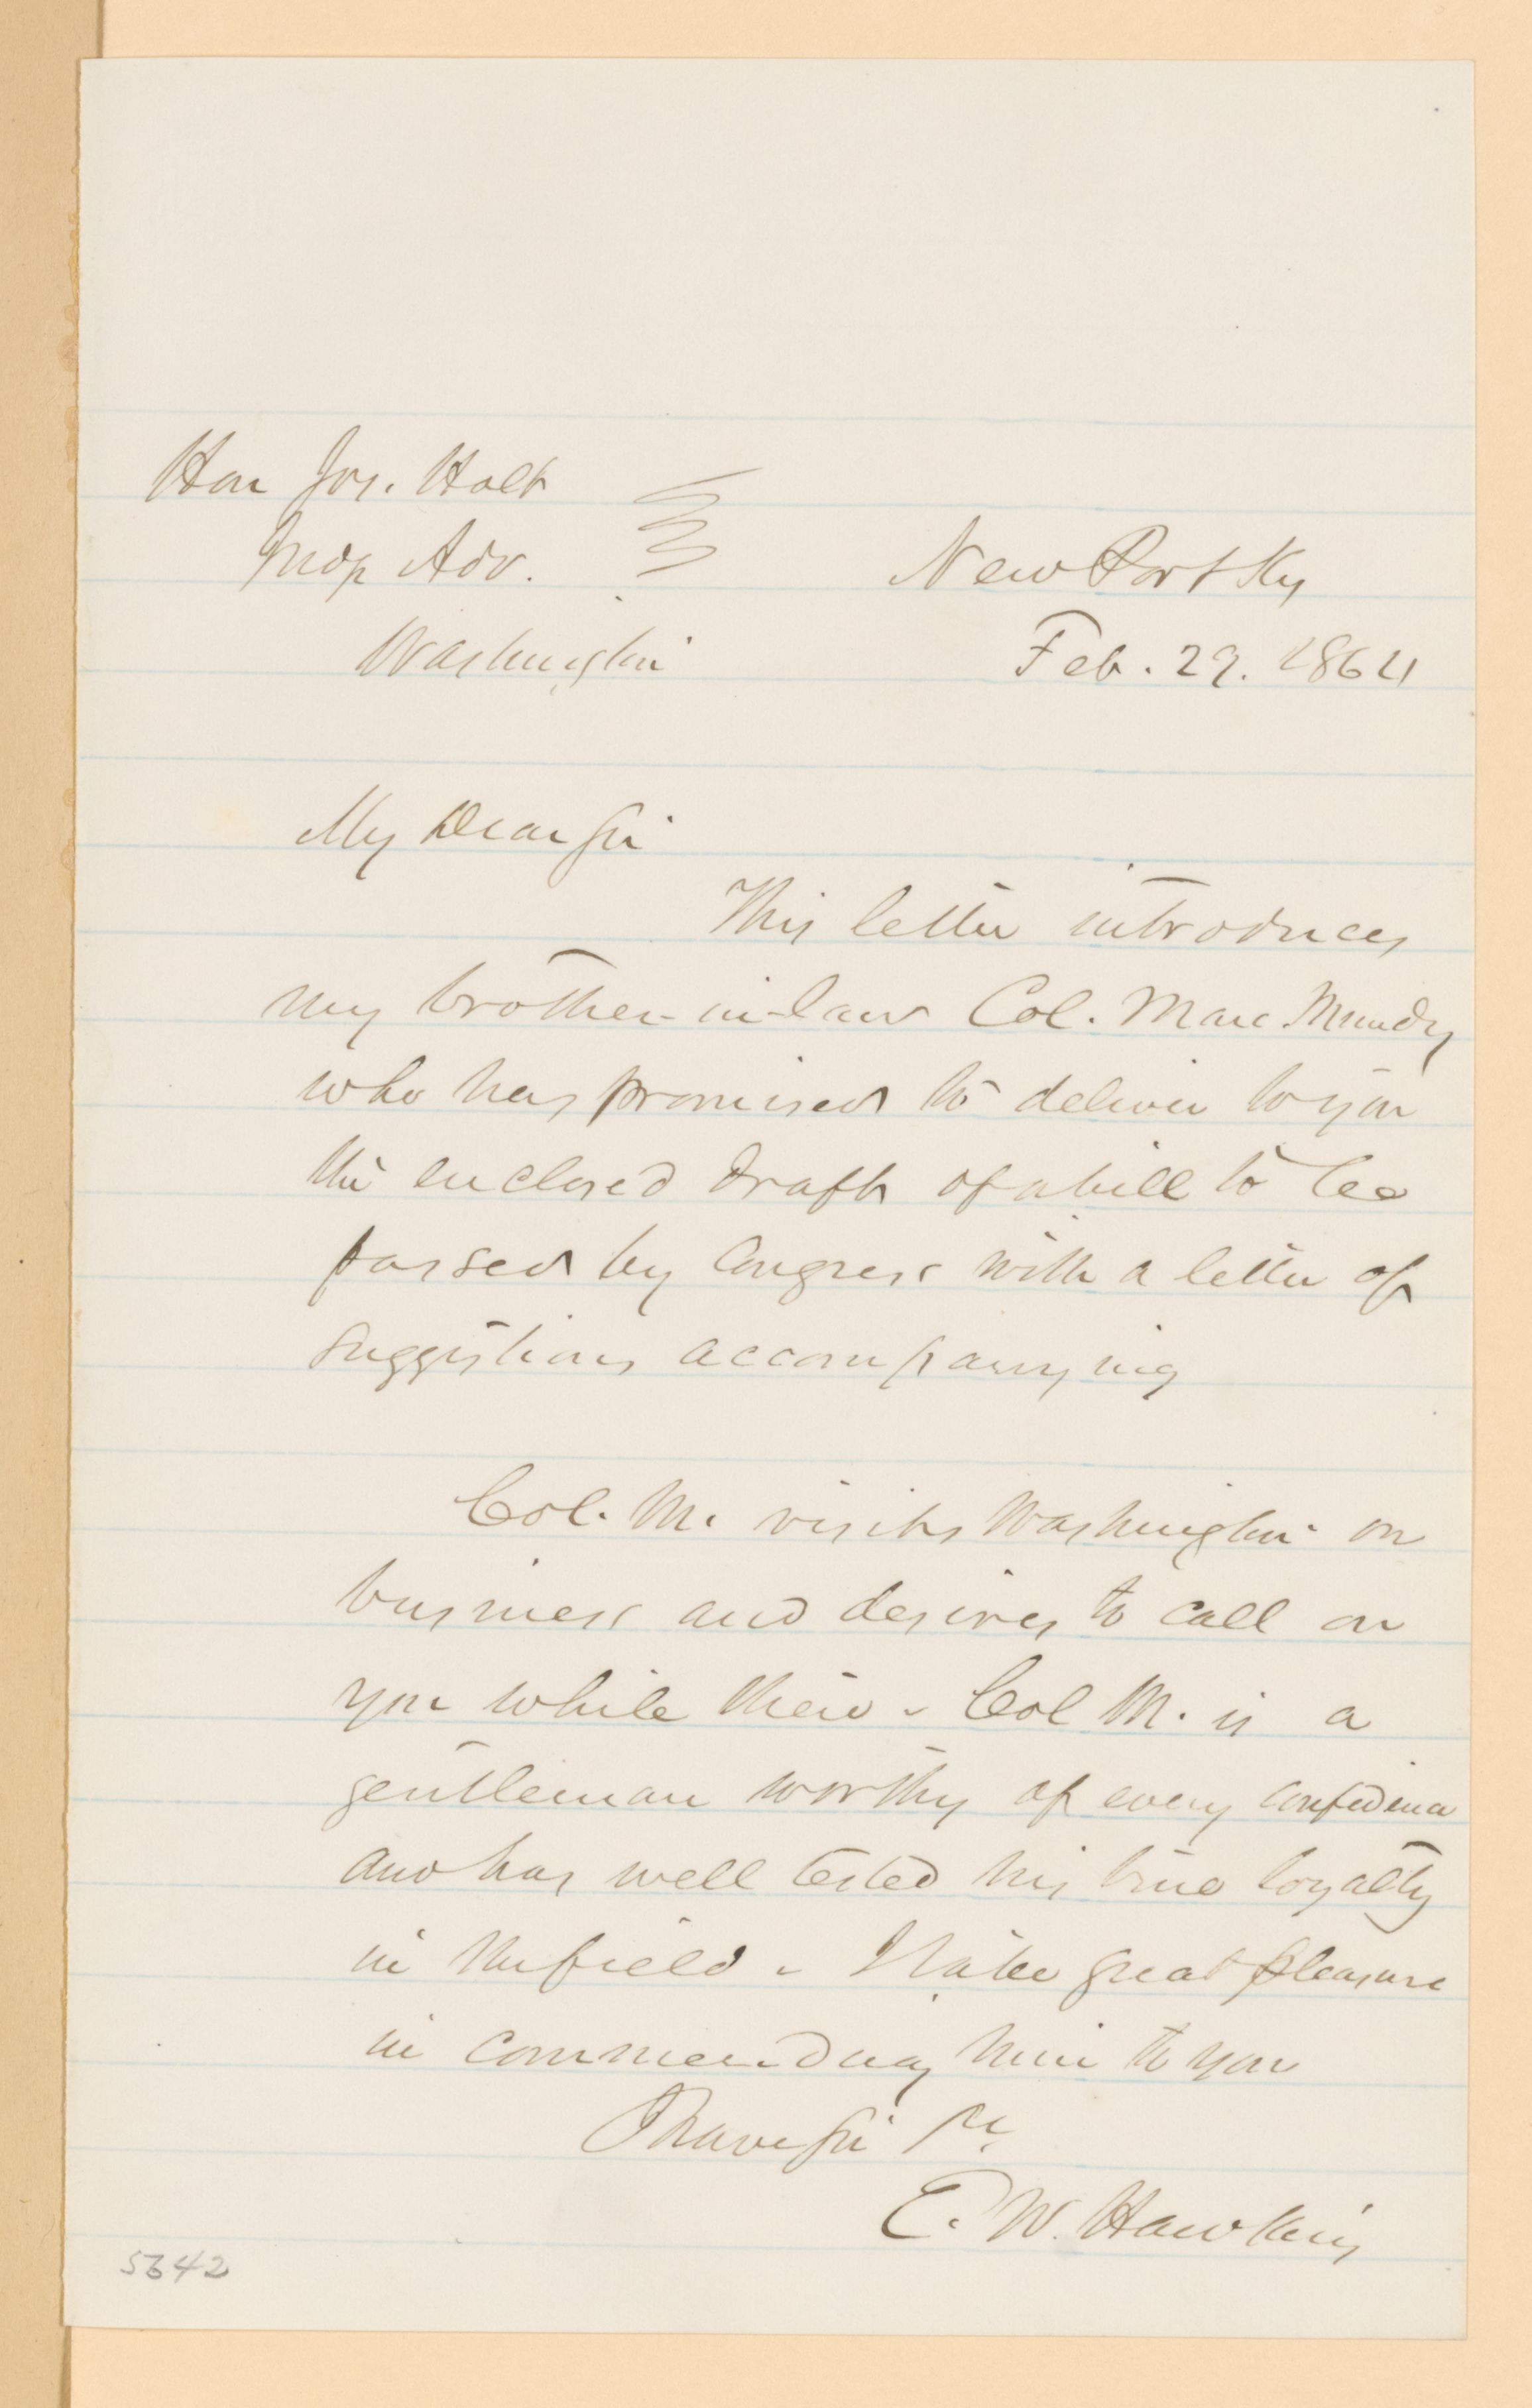 Hon Jos. Holt
Judge Adv.
Washington
New Port Ky
Feb. 29. 1864
My Dear Sir
This letter introduces
my brother-in-law Col. Marc. Mundy
who has promised to deliver to you
the enclosed draft of a bill to be
passed by Congress with a letter of
suggestions accompanying
Col. M. visits Washington on
business and desires to call on
you while there - Col M. is a
gentleman worthy of every confidence
and has well tested his true loyalty
in the field - I take great pleasure
in commending him to you
I have Sir &c
E. W. Hawkins
5642